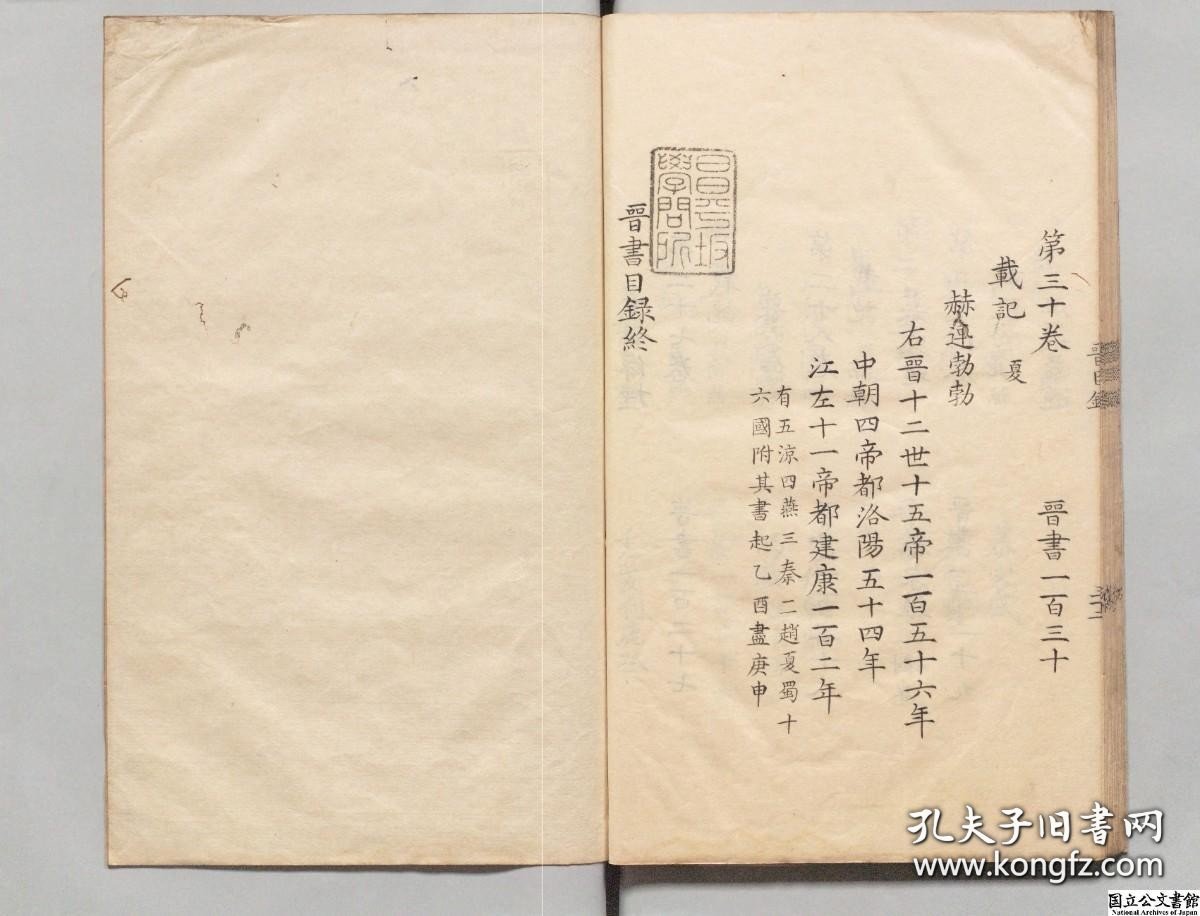 第三十卷 晉書一百三十
載記 夏
赫連勃勃
右晉十二世十五帝一百五十六年
中朝四帝都洛陽五十四年
江左十一帝都建康一百二年
有五涼四燕三秦二趙夏蜀十
六國附其書起乙酉盡庚申
晉書目録終
昌平坂
學問所
晉目錄
孔夫子旧书网
www.kongfz.com
国立公文書館
National Archives of Japan